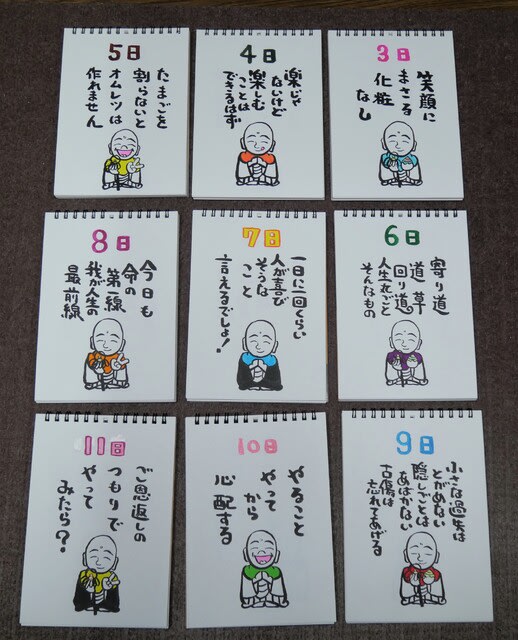 3日
笑顔に
まさる
化粧
なし
4日
楽じゃ
ないけど
楽しむ
ことは
できるはず
5日
たまごを
割らないと
オムレツは
作れません
6日
寄り道
道草
回り道
人生丸ごと
そんなもの
7日
一日に一回くらい
人が喜び
そうな
こと
言えるでしょ!
8日
今日も
命の
第一線
我が人生の
最前線
9日
小さな過失は
とがめない
隠しごとは
あばかない
古傷は
忘れてあげる
10日
やること
やって
から
心配する
11日
ご恩返しの
つもりで
やって
みたら?